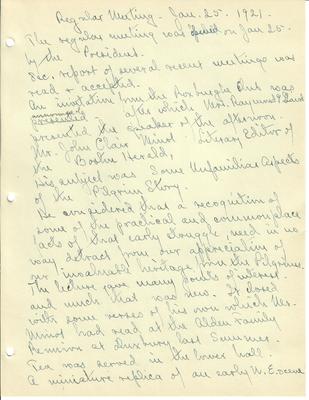 Regular Meeting - Jan. 25. 1921.
The regular meeting was opened on Jan 25.
by the President.
Sec. report of several recent meetings was
read & accepted.
An invitation from the Club was
announced
presented after which Mrs. Raymond
presented the speaker of the afternoon.
Mr. John Clair Minot Literary Editor of
the Boston Herald,
His subject was Some Unfamiliar Aspects
of the Pilgrim Story.
He considered that a recognition of
some of the practical and commonplace
facts of that early struggle, need in no
way detract from our appreciation of
our invaluable heritage from the Pilgrims.
The lecture gave many points of interest.
and much that was new. It closed
with some verses of his own which Mr.
Minot had read at the Alden Family
Reunion at Duxbury last Summer.
Tea was served in the lower hall.
A miniature replica of an early N.E. scene